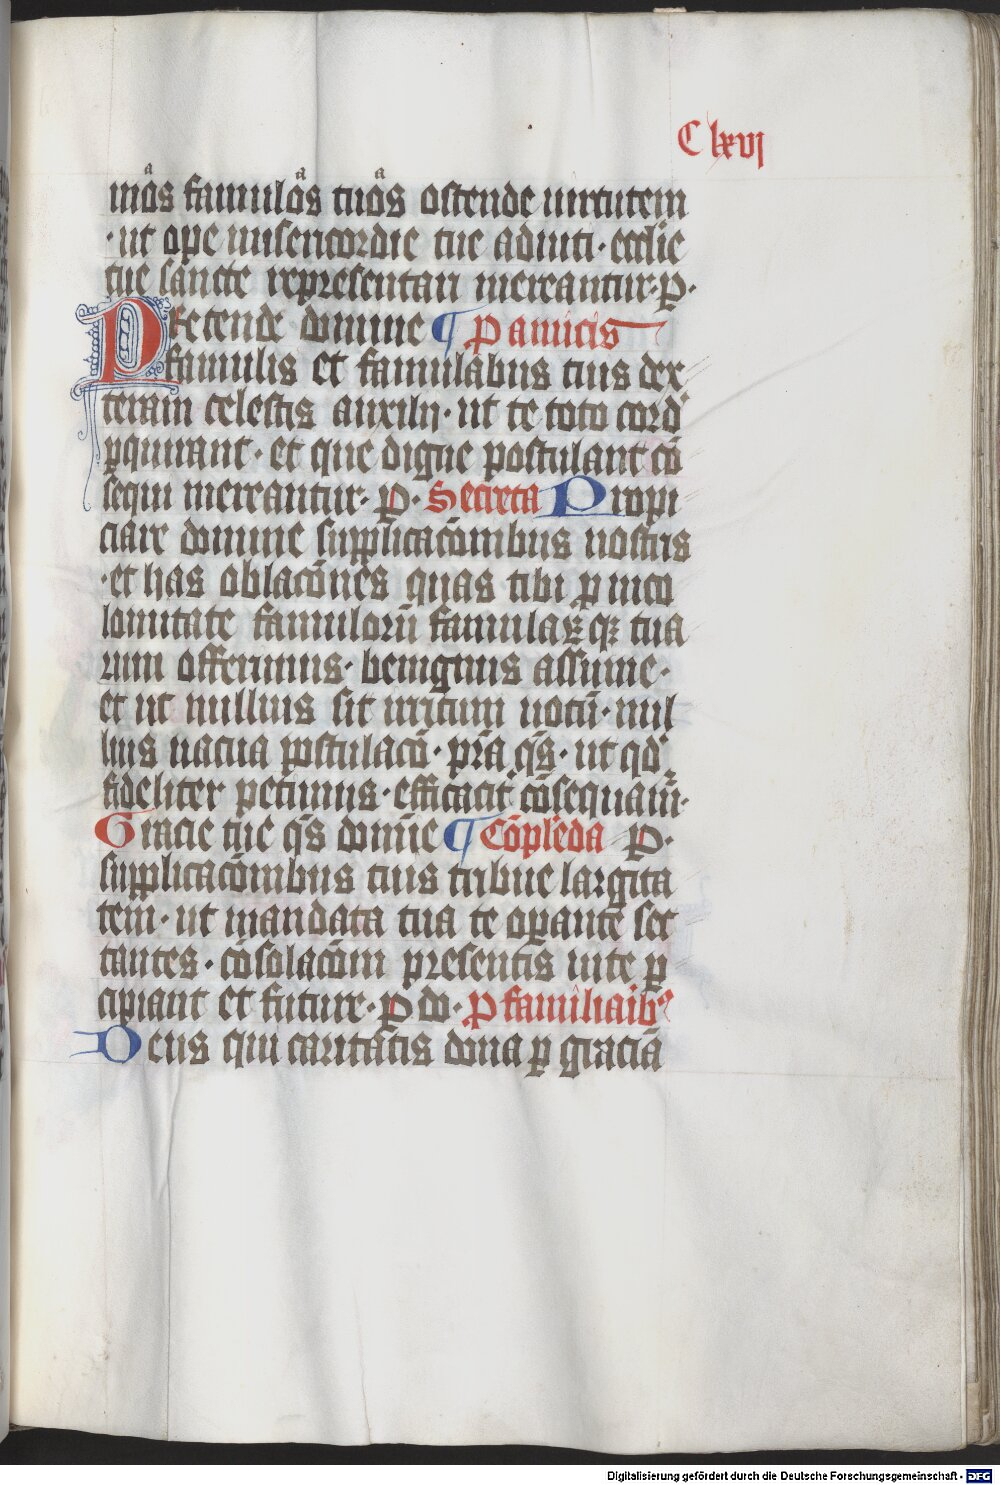 C lxvj
mos famulos tuos ostende uirtutem
· ut ope misericordie tue adiuti · ecclie
tue sancte representari mereantur · p ·
Pretende domine ¶ P amicis
famulis et famulabus tuis dex
teram celestis auxilij · ut te toto cord
pquirant · et que digne postulant cō
sequi mereantur · p · Secreta Propi
ciare domine supplicacōnibus nostris
· et has oblacōnes quas tibi p inco
lomitate famulorū famulaꝝ qꝫ tua
rum offerimus · benignus assume ·
et ut nullius sit irritum uotū · nul
lius uacua postulacō · pr̄a qs̄ · ut qd
fideliter petimus · efficacit cōsequam̄ ·
Gracie tue qs̄ domīe ¶ Cōplēda P ·
supplicacōnibus tuis tribue largita
tem · ut mandata tua te opante sec
tantes · cōsolacōnem presentis uite p
cipiant et future · p do · P familiaribꝰ
Deus qui caritatis dona p graciā
Digitalisierung gefördert durch die Deutsche Forschungsgemeinschaft - DFG